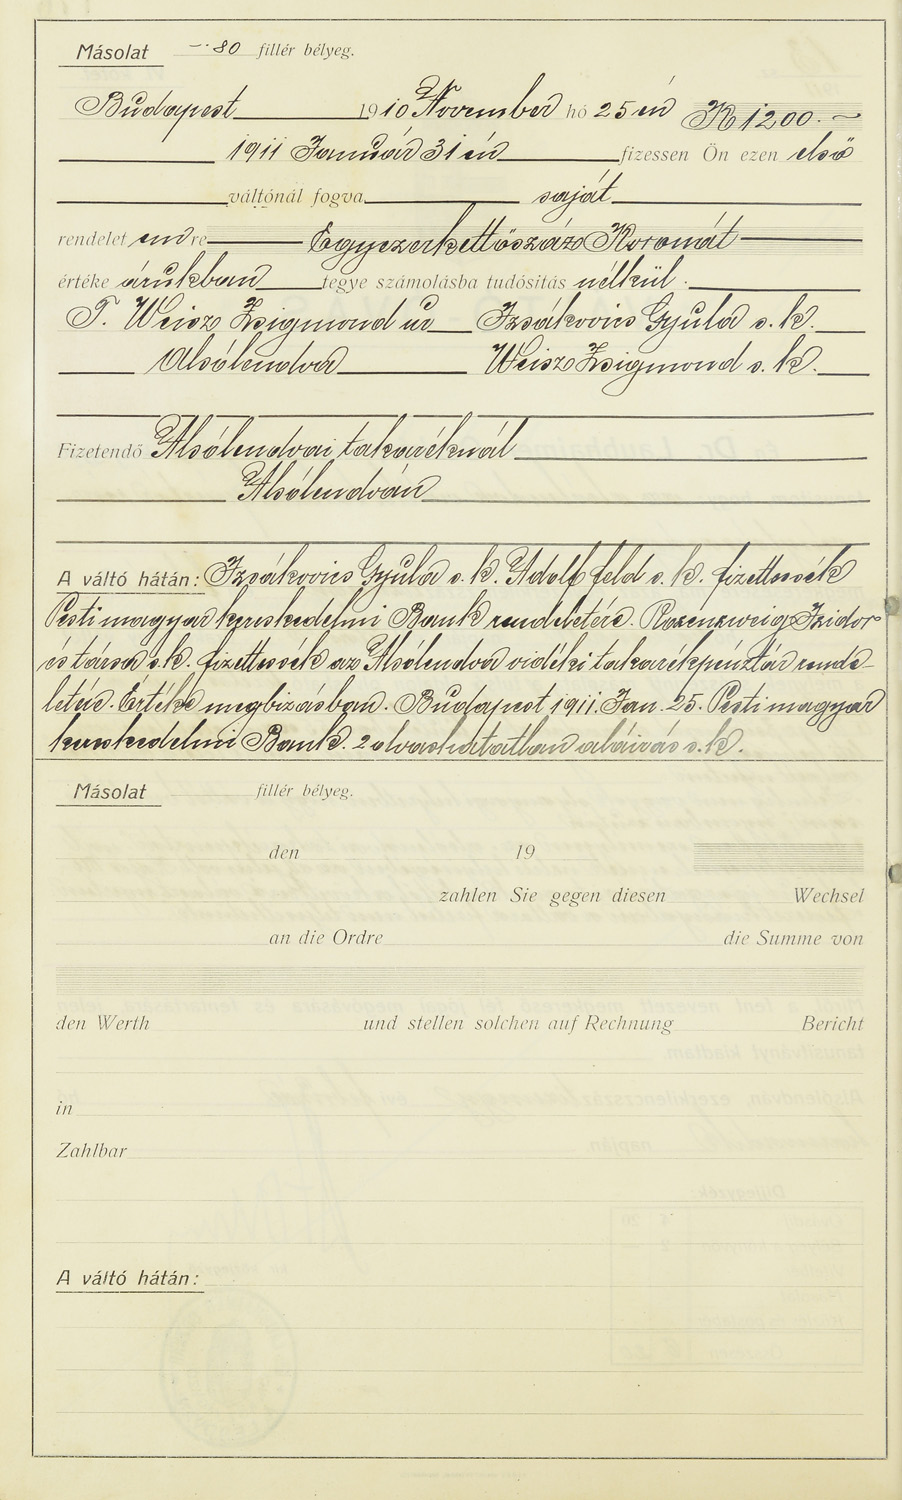 Másolat —·80 fillér bélyeg.
Budapest 1910 November hó 25én K 1200.—
1911 Január 31én fizessen Ön ezen első
váltónál fogva saját
rendelet emre Egyezerkettőszáz Koronát
értéke árukban tegye számolásba tudósítás nélkül.
T. Weisz Zsigmond úr Izsákovics Gyula s. k.
Alsólendva Weisz Zsigmond s. k.
Fizetendő Alsólendvai takaréknál
Alsólendván
A váltó hátán: Izsákovics Gyula s. k. Adolf feld s. k. fizettessék
Pesti magyar kereskedelmi Bank rendeletére. Rosenzweig Izidor
és társa s. k. fizettessék az Alsólendva vidéki takarékpénztár rende-
letére. Értéke megbizásban. Budapest 1911. Jan. 25. Pesti magyar
kereskedelmi Bank. 2 olvashatatlan aláirás s. k.
Másolat fillér bélyeg.
den 19
zahlen Sie gegen diesen Wechsel
an die Ordre die Summe von
den Werth und stellen solchen auf Rechnung Bericht
in
Zahlbar
A váltó hátán: